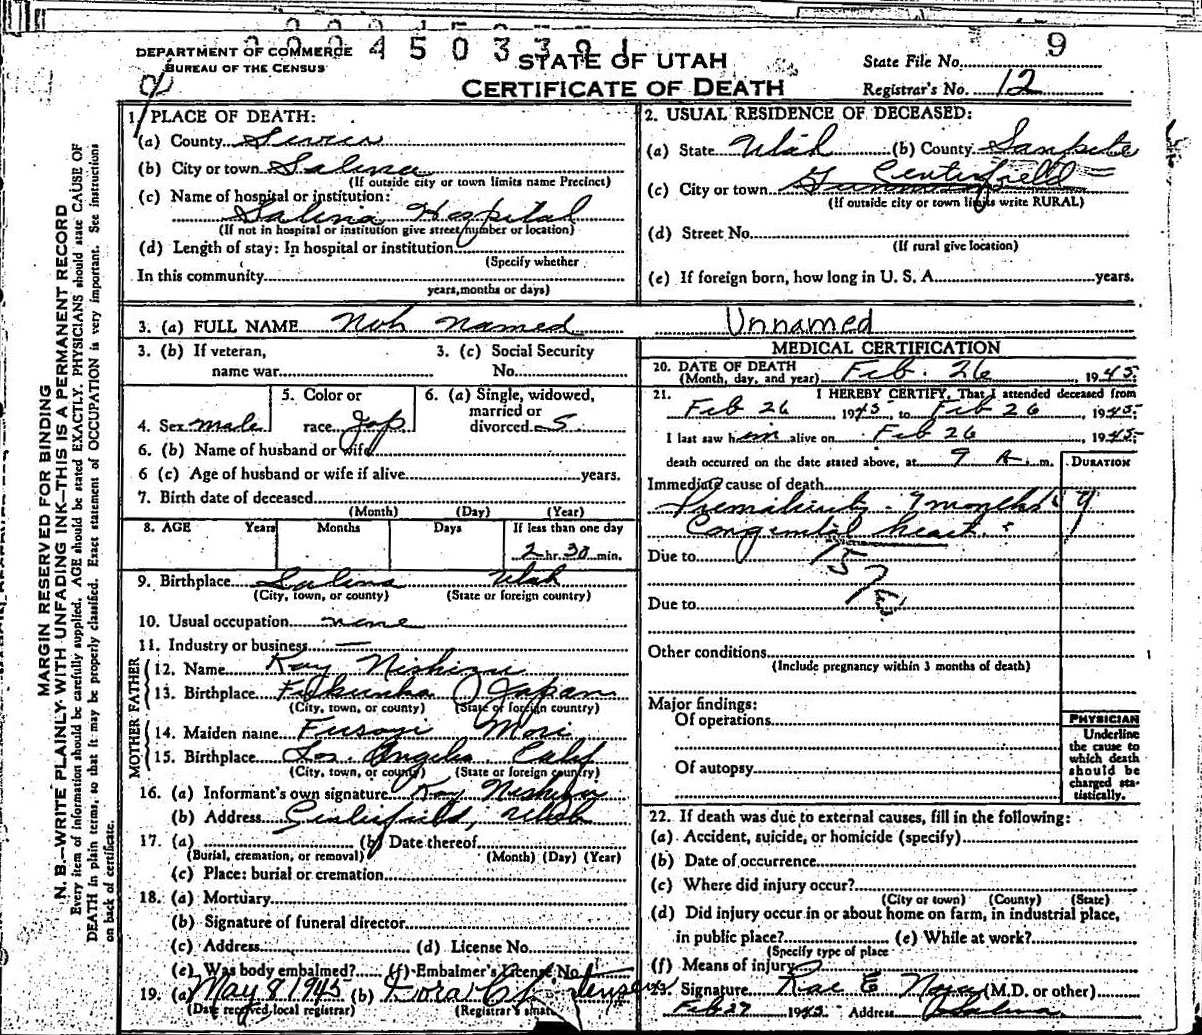 0004503391
DEPARTMENT OF COMMERCE
BUREAU OF THE CENSUS
STATE OF UTAH
CERTIFICATE OF DEATH
State File No. 9
Registrar's No. 12
MARGIN RESERVED FOR BINDING
N. B.—WRITE PLAINLY WITH UNFADING INK—THIS IS A PERMANENT RECORD
Every item of information should be carefully supplied. AGE should be stated EXACTLY. PHYSICIANS should state CAUSE OF
DEATH in plain terms, so that it may be properly classified. Exact statement of OCCUPATION is very important. See instructions
on back of certificate.
1. PLACE OF DEATH:
(a) County Sevier
(b) City or town Salina
(If outside city or town limits name Precinct)
(c) Name of hospital or institution:
Salina Hospital
(If not in hospital or institution give street number or location)
(d) Length of stay: In hospital or institution
(Specify whether
In this community
years, months or days)
2. USUAL RESIDENCE OF DECEASED:
(a) State Utah (b) County Sanpete
Centerfield
(c) City or town Gunnison
(If outside city or town limits write RURAL)
(d) Street No.
(If rural give location)
(e) If foreign born, how long in U. S. A. years.
3. (a) FULL NAME Not Named Unnamed
3. (b) If veteran, name war
3. (c) Social Security No.
4. Sex male
5. Color or race Jap
6. (a) Single, widowed, married or divorced S
6. (b) Name of husband or wife
6 (c) Age of husband or wife if alive years.
7. Birth date of deceased
(Month) (Day) (Year)
8. AGE Years Months Days If less than one day
2 hr. 30 min.
9. Birthplace Salina Utah
(City, town, or county) (State or foreign country)
10. Usual occupation none
11. Industry or business —
FATHER
12. Name Kay Nishizu
13. Birthplace Japan
(City, town, or county) (State or foreign country)
MOTHER
14. Maiden name Mori
15. Birthplace Los Angeles Calif
(City, town, or county) (State or foreign country)
16. (a) Informant's own signature Kay Nishizu
(b) Address Centerfield, Utah
17. (a) (b) Date thereof
(Burial, cremation, or removal) (Month) (Day) (Year)
(c) Place: burial or cremation
18. (a) Mortuary
(b) Signature of funeral director
(c) Address (d) License No.
(e) Was body embalmed? (f) Embalmer's License No.
19. (a) May 8 1945 (b) Dora
(Date received local registrar) (Registrar's
MEDICAL CERTIFICATION
20. DATE OF DEATH Feb. 26, 1945
(Month, day, and year)
21. I HEREBY CERTIFY, That I attended deceased from
Feb 26 1945, to Feb 26, 1945
I last saw him alive on Feb 26, 1945
death occurred on the date stated above, at 9 A. m.
DURATION
Immediate cause of death
7 months
heart
Due to
Due to
Other conditions
(Include pregnancy within 3 months of death)
Major findings:
Of operations
Of autopsy
PHYSICIAN
Underline
the cause to
which death
should be
charged sta-
tistically.
22. If death was due to external causes, fill in the following:
(a) Accident, suicide, or homicide (specify)
(b) Date of occurrence
(c) Where did injury occur?
(City or town) (County) (State)
(d) Did injury occur in or about home on farm, in industrial place,
in public place? (e) While at work?
(Specify type of place
(f) Means of injury
23. Signature Rae E Noyes (M.D. or other)
Feb 27 1945 Address Salina